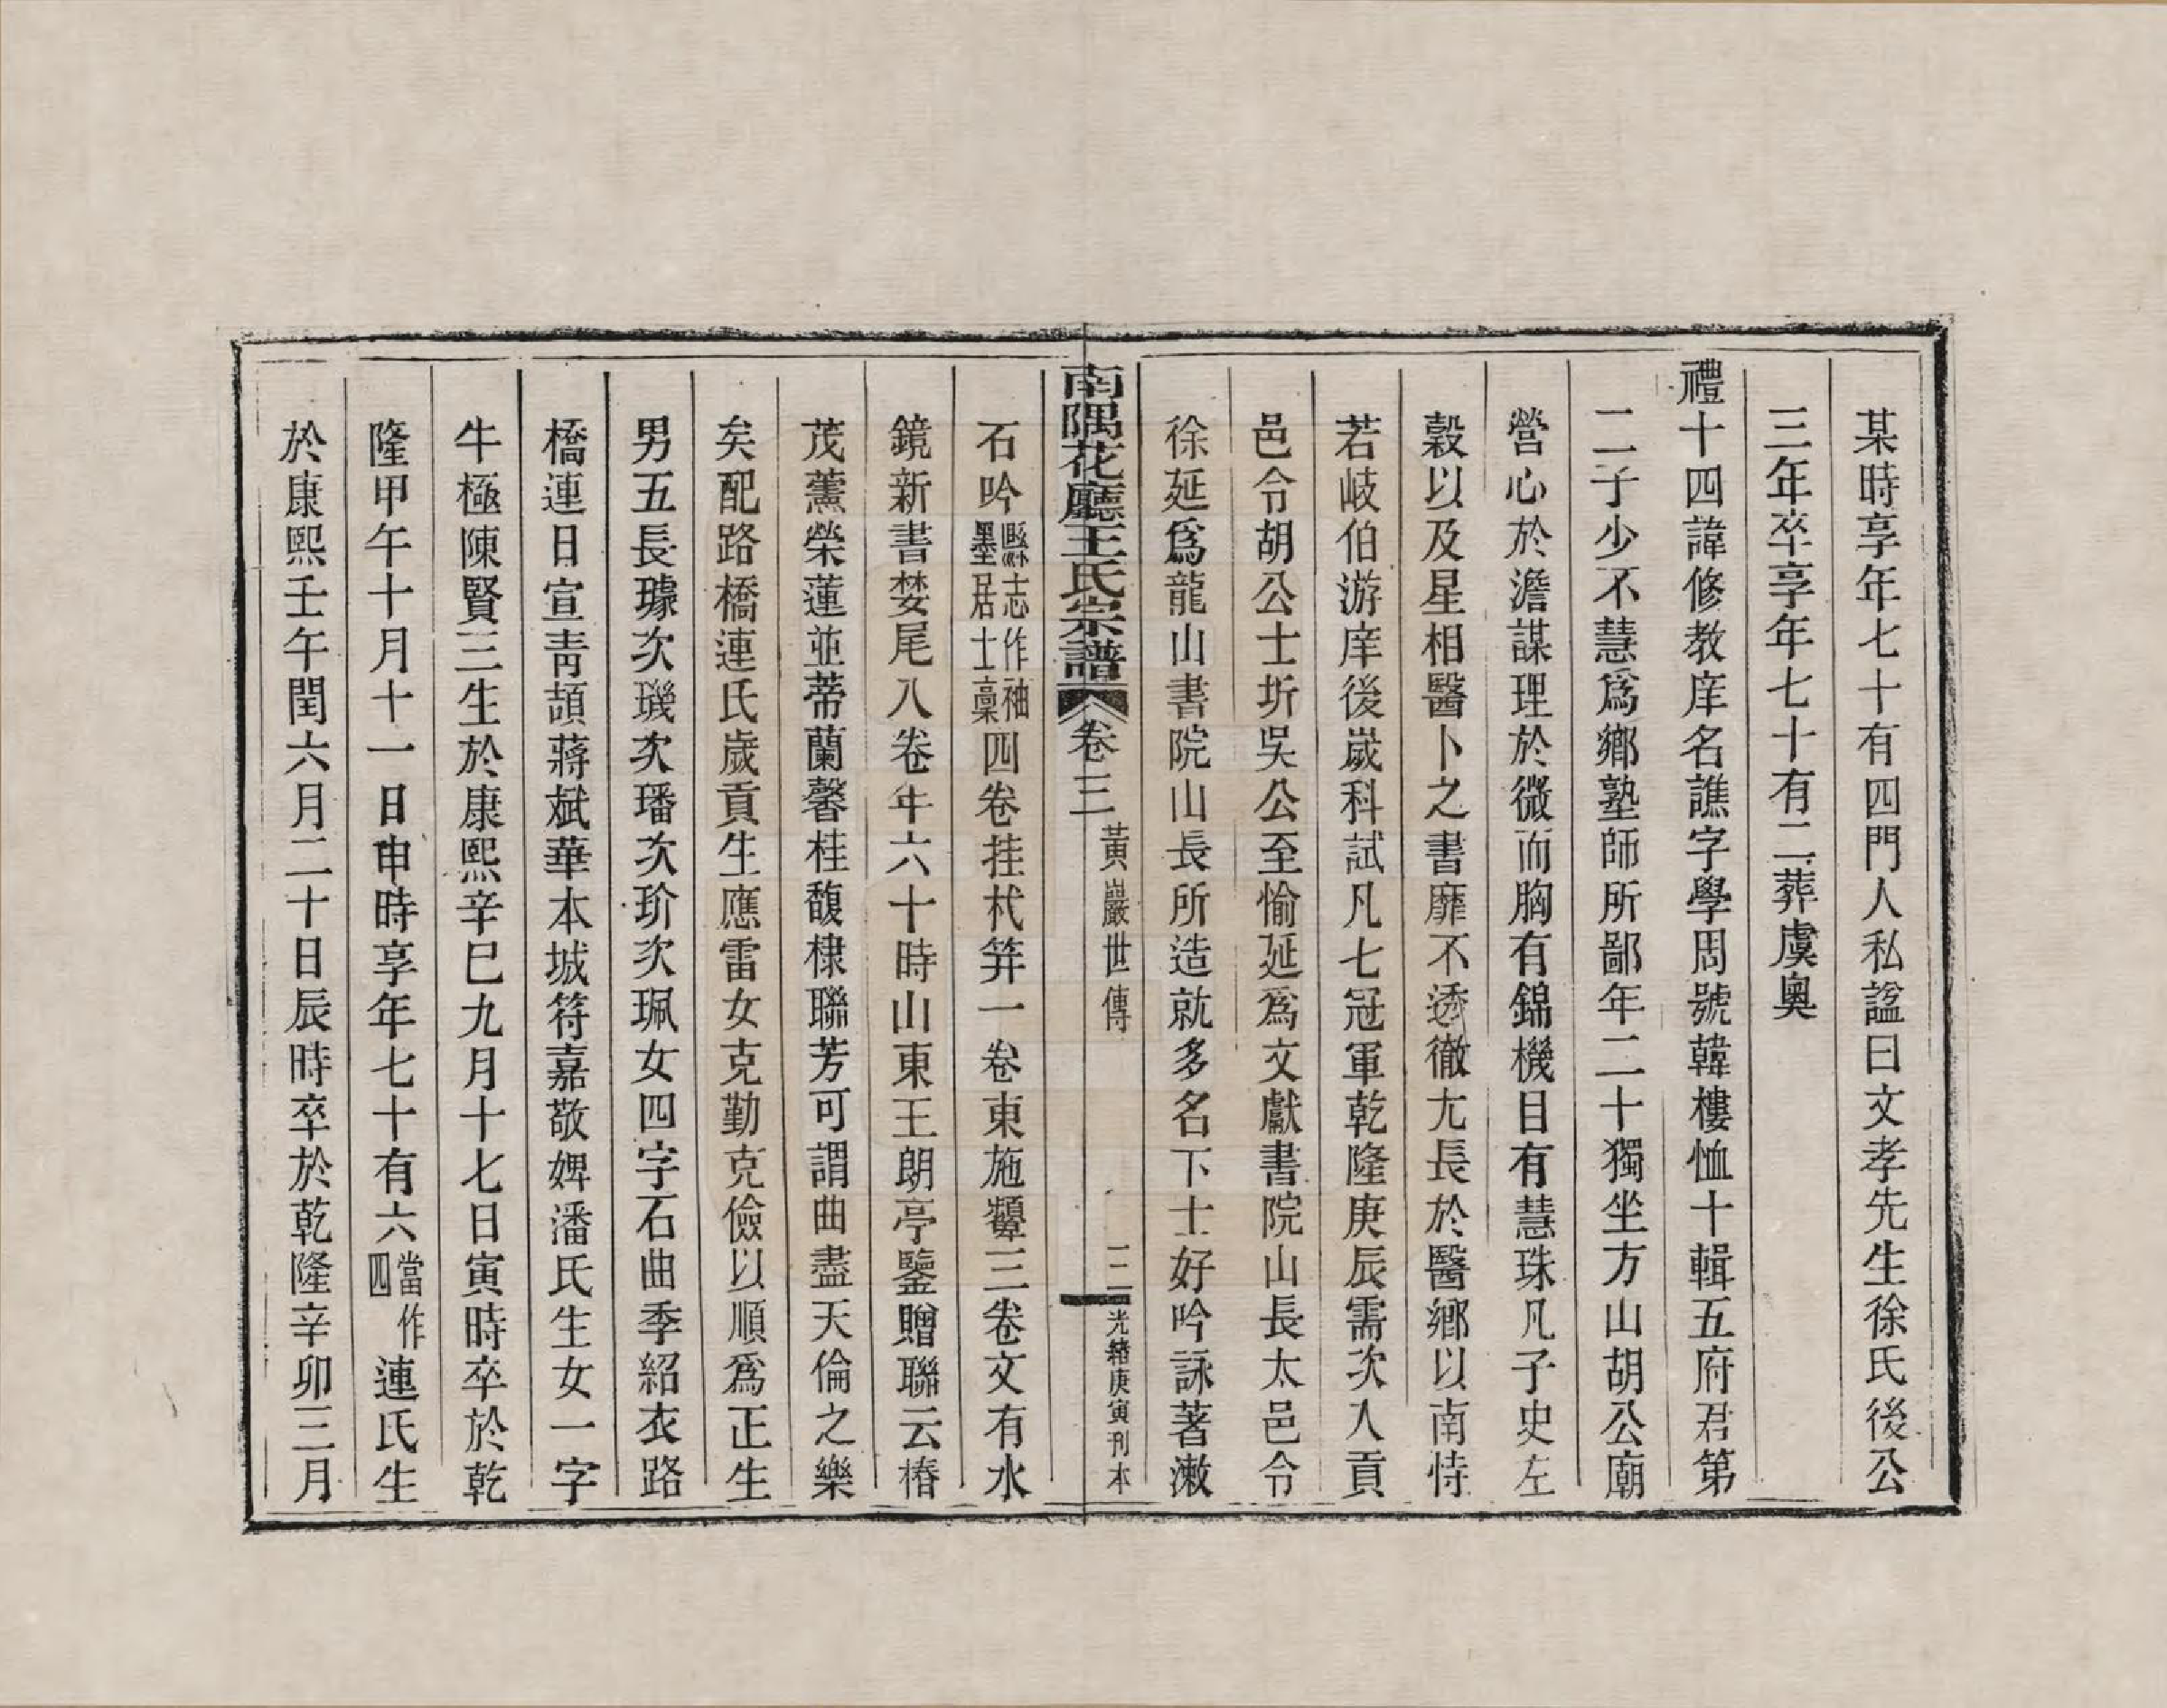 某時享年七十有四門人私諡曰文孝先生徐氏後公
三年卒享年七十有二葬虞奧
禮十四諱修教庠名譙字學周號韓樓恤十輯五府君第
二子少不慧爲鄉塾師所鄙年二十獨坐方山胡公廟
營心於澹謀理於微而胸有錦機日有慧珠凡子史左
穀以及星相醫卜之書靡不透徹尢長於醫鄉以南恃
若岐伯游庠後嵗科試凡七冠軍乾隆庚辰需次入貢
邑令胡公士圻吳公至愉延爲文獻書院山長太邑令
徐延爲龍山書院山長所造就多名下士好吟詠著漱
南隅花廳王氏宗譜 卷三 黃巖世傳 三 光緖庚寅刊本
石吟縣志作袖墨居士稾四卷挂杙筭一卷東施顰三卷文有水
鏡新書婪尾八卷年六十時山東王朗亭鑒贈聯云椿
茂薰榮蓮並蒂蘭馨桂馥棣聯芳可謂曲盡天倫之樂
矣配路橋連氏歲貢生應雷女克勤克儉以順爲正生
男五長璩次璣次璠次玠次珮女四字石曲季紹衣路
橋連日宣靑頡蔣斌華本城符嘉敬婢潘氏生女一字
牛極陳賢三生於康熙辛巳九月十七日寅時卒於乾
隆甲午十月十一日申時享年七十有六當作四連氏生
於康熙壬午閏六月二十日辰時卒於乾隆辛卯三月